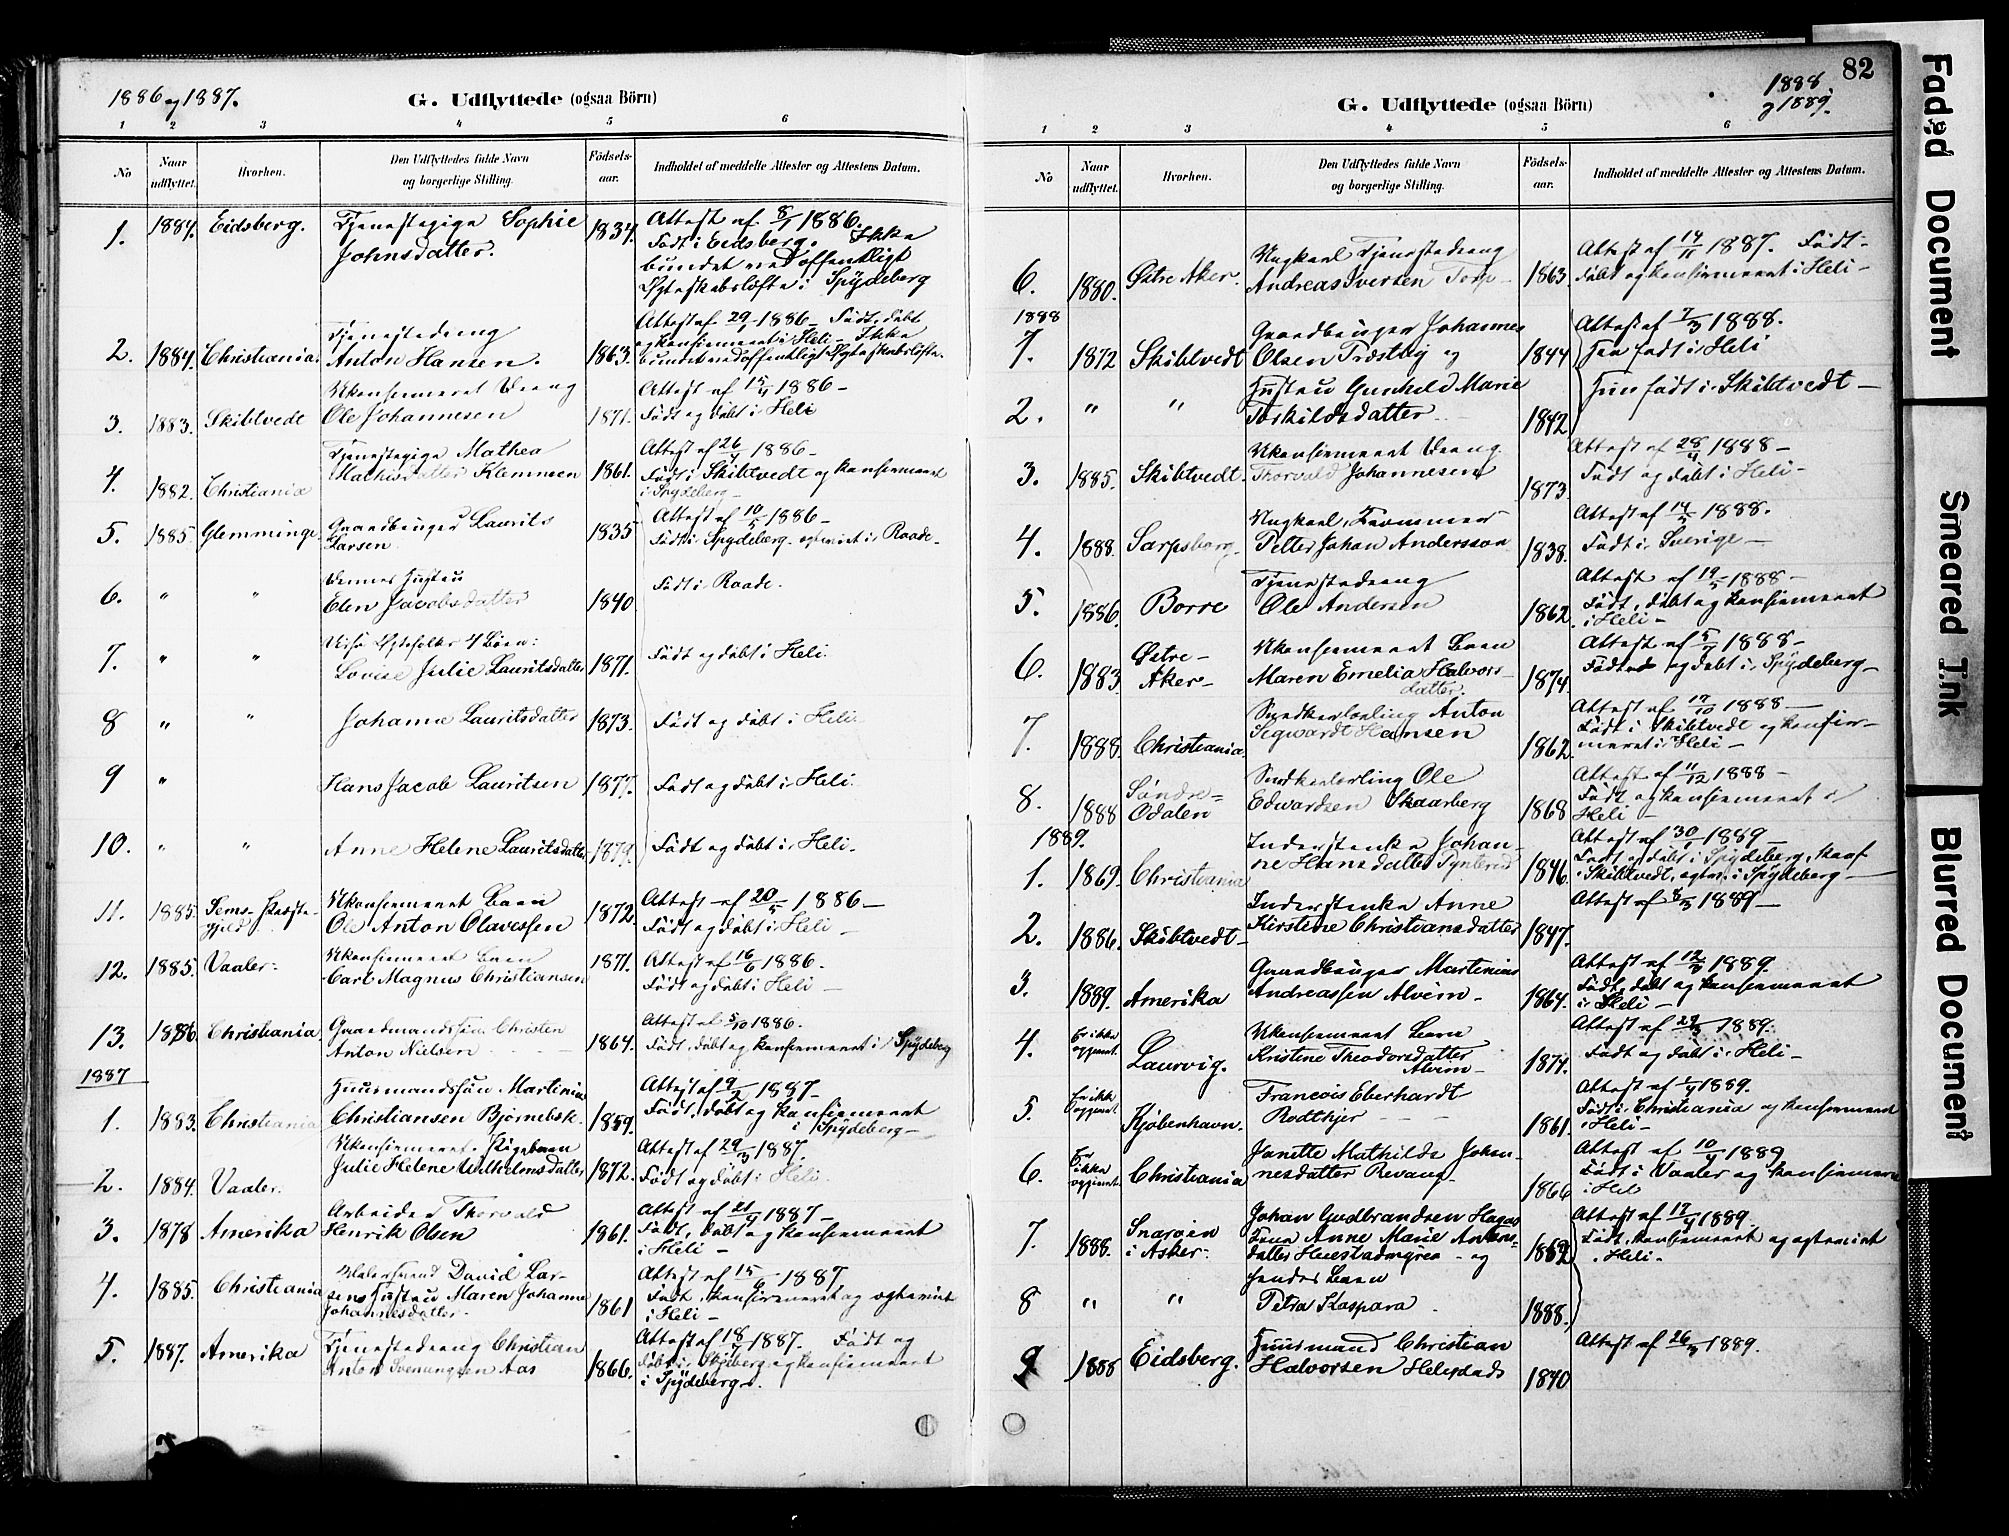 1886 og 1887.
G. Udflyttede (ogsaa Börn)
1 2 3 4 5 6
No
Naar udflyttet.
Hvorhen.
Den Udflyttedes fulde Navn og borgerlige Stilling.
Födsels-aar.
Indholdet af meddelte Attester og Attestens Datum.
1. 1884. Eidsberg. Tjenestepige Sophie 1834. Attest af 8/1 1886.
Johnsdatter. Født i Eidsberg. Ikke
bundet ved offentligt
Ægteskabsløfte i Spydeberg
Tjenestedreng Attest af 29/1 1886 – Født, døbt
2. 1884. Christiania. Anton Hansen. 1863. og konfirmeret i Heli – Ikke
bundet ved offentligt Ægteskabsløfte.
Ukonfirmeret Dreng Attest af 15/4 1886 –
3. 1883. Skibtvedt Ole Johannesen 1871. Født og døbt i Heli
Tjenestepige Mathea Attest af 26/4 1886 –
4. 1882. Christiania Mathisdatter Klemmsen 1861. Født i Skibtvedt og konfirmeret
i Spydeberg –
5. 1885. Glemminge Gaardbruger Laurits 1835 Attest af 10/5 1886 –
Larsen. Født i Spydeberg – egteviet i Raade –
Dennes Hustru
6. " " Elen Jacobsdatter 1840 Født i Raade.
Disse Ægtefolks 4 Børn:
7. " " Lovise Julie Lauritsdatter 1871. Født og døbt i Heli
8 " " Johanne Lauritsdatter 1873. Født og døbt i Heli.
9 " Hans Jacob Lauritsen 1877. Født og døbt i Heli.
10. " " Anne Helene Lauritsdatter 1879. Født og døbt i Heli.
11. 1885. Sems-Præste- Ukonfirmeret Barn 1872. Attest af 20/5 1886 –
gjeld Ole Anton Olavessen Født og døbt i Heli –
12. 1885. Vaaler. Ukonfirmeret Barn 1871. Attest af 16/6 1886 –
Carl Magnus Christiansen Født og døbt i Heli –
13. 1886. Christiania Gaardmandssøn Christen 1864. Attest af 5/10 1886.
Anton Nielsen Født, døbt og konfirmeret i Spydeberg
1887
Huusmandssøn Martinius Attest af 9/2 1887 –
1. 1883. Christiania Christiansen Bjørnebæk. 1859. Født, døbt og konfirmeret
i Spydeberg –
Ukonfirmeret Pigebarn Attest af 29/3 1887.
2. 1884. Vaaler. Julie Helene Wilhelmsdatter 1872. Født og døbt i Heli.
Arbeider Thorvald Attest af 21/4 1887 –
3. 1878 Amerika Henrik Olsen 1861. Født, døbt og konfirmeret
i Heli –
4. 1885. Christiania David Lar- Attest af 15/6 1887
sens Hustru Maren Johanne 1861 Født, konfirmeret og egteviet
Johannesdatter. i Heli –
5. 1887. Amerika Tjenestedreng Christian 1866. Attest af 18/7 1887. Født og
Anton Svenungsen Aas døbt i Skjeberg og konfirmeret
i Spydeberg.
82
1888
og 1889.
G. Udflyttede (ogsaa Börn)
1 2 3 4 5 6
No
Naar udflyttet.
Hvorhen.
Den Udflyttedes fulde Navn og borgerlige Stilling.
Födsels-aar.
Indholdet af meddelte Attester og Attestens Datum.
Ungkarl Tjenestedreng Attest af 14/11 1887. Født
6. 1880. Østre Aker. Andreas Iversen Torp 1863. døbt og konfirmeret i Heli –
1888
Gaardbruger Johannes Attest af 7/3 1888.
1. 1872 Skibtvedt Olsen Træstby og 1844 Han født i Heli
Hustru Gunhild Marie Hun født i Skibtvedt –
2. " " Torkildsdatter 1842
Ukonfirmeret Dreng Attest af 28/4 1888 –
3. 1885. Skibtvedt. Thorvald Johannesen 1873. Født og døbt i Heli –
Ungkarl, Attest af 14/5 1888.
4. 1888. Sarpsborg. Petter Johan Andersson 1838. Født i Sverige –
Tjenestedreng Attest af 19/5 1888 –
5. 1886. Borre Ole Andersen 1862. Født, døbt og konfirmeret
i Heli –
Østre- Ukonfirmeret Barn Attest af 5/7 1888 –
6. 1883 Aker – Maren Emelia Halvors- 1874. Født og døbt i Spydeberg –
datter.
Anton Attest af 17/10 1888 –
7. 1888. Christiania. Segwardt Hansen 1862. Født i Skibtvedt og konfir-
meret i Heli –
Søndre- Ole Attest af 11/12 1888 –
8. 1888 Odalen Edwardsen Skaarberg 1868 Født og konfirmeret i
Heli –
1889.
Inderstenke Johan- Attest af 30/1 1889 –
1. 1869. Christiania ne Hansdatter 1846. Født og døbt i Spydeberg, konf
i Skibtvedt, egtev. i Spydeberg –
Inderstenke Anne Attest af 8/3 1889 –
2. 1886. Skibtvedt – Kirstine Christiansdatter 1847.
Gaardbruger Martinius Attest af 12/3 1889.
3. 1889. Amerika Andreassen Alvim – 1864. Født, døbt og konfirmeret
i Heli –
4. Er ikke opgivet. Laurvig. Ukonfirmeret Barn Attest af 29/3 1889.
Kristine Theodorsdatter 1874. Født og døbt i Heli –
Alvim –
5. Er ikke opgivet. Kjøbenhavn. Francois Eberhardt Attest af 1/4 1889.
Rodthjer 1861. Født i Christiania og konfirmeret
i Heli –
6. Er ikke opgivet. Christiania Janette Mathilde Johan- Attest af 10/4 1889
nesdatter Revaug – 1866 Født i Vaaler og konfirmeret
i Heli
7. 1888. Snarøen Johan Gudbrandsen Attest af 17/4 1889.
i Asker. Anne Marie Antons- 1862 Født, konfirmeret og egteviet
datter og i Heli.
hendes Barn
8 " " Petra Kaspara 1888.
9 1888 Eidsberg. Huusmand Christian Attest af 26/4 1889.
Halvorsen 1840
Faded Document
Smeared Ink
Blurred Document